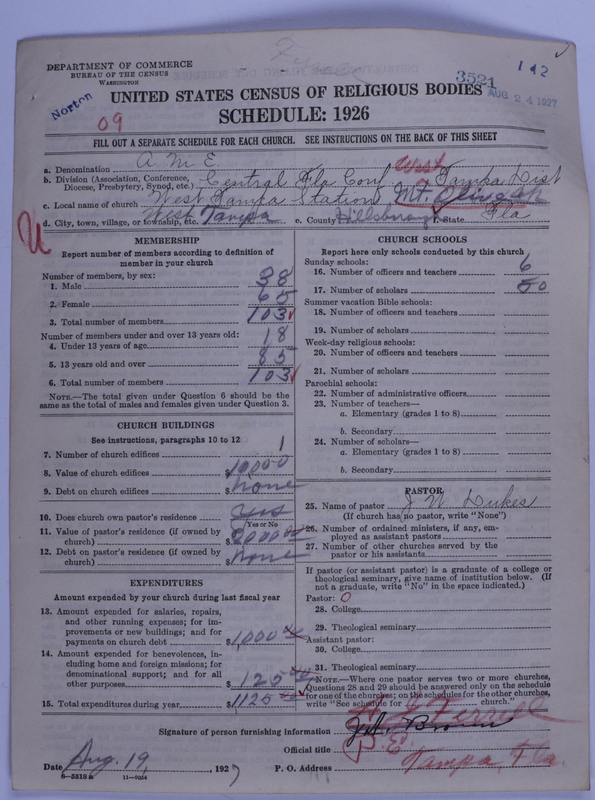 DEPARTMENT OF COMMERCE
BUREAU OF THE CENSUS
WASHINGTON
142
3521
AUG 24 1927
Norton
09
UNITED STATES CENSUS OF RELIGIOUS BODIES
SCHEDULE: 1926
FILL OUT A SEPARATE SCHEDULE FOR EACH CHURCH. SEE INSTRUCTIONS ON THE BACK OF THIS SHEET
a. Denomination A. M. E.
b. Division (Association, Conference, Diocese, Presbytery, Synod, etc.) Central Fla Conf West Tampa Dist
c. Local name of church West Tampa Station Mt
d. City, town, village, or township, etc. West Tampa e. County Hillsborough f. State Fla
U
MEMBERSHIP
Report number of members according to definition of
member in your church
Number of members, by sex:
1. Male 38
2. Female 65
3. Total number of members 103
Number of members under and over 13 years old:
4. Under 13 years of age 18
5. 13 years old and over 85
6. Total number of members 103
NOTE.—The total given under Question 6 should be the
same as the total of males and females given under Question 3.
CHURCH BUILDINGS
See instructions, paragraphs 10 to 12
7. Number of church edifices 1
8. Value of church edifices $10000
9. Debt on church edifices $none
10. Does church own pastor's residence yes
Yes or No
11. Value of pastor's residence (if owned by
church) $2000.00
12. Debt on pastor's residence (if owned by
church) $none
EXPENDITURES
Amount expended by your church during last fiscal year
13. Amount expended for salaries, repairs,
and other running expenses; for im-
provements or new buildings; and for
payments on church debt $1,000
14. Amount expended for benevolences, in-
cluding home and foreign missions; for
denominational support; and for all
other purposes $125
15. Total expenditures during year $1125
CHURCH SCHOOLS
Report here only schools conducted by this church
Sunday schools:
16. Number of officers and teachers 6
17. Number of scholars 50
Summer vacation Bible schools:
18. Number of officers and teachers
19. Number of scholars
Week-day religious schools:
20. Number of officers and teachers
21. Number of scholars
Parochial schools:
22. Number of administrative officers
23. Number of teachers—
a. Elementary (grades 1 to 8)
b. Secondary
24. Number of scholars—
a. Elementary (grades 1 to 8)
b. Secondary
PASTOR
25. Name of pastor J W Dukes
(If church has no pastor, write "None")
26. Number of ordained ministers, if any, em-
ployed as assistant pastors
27. Number of other churches served by the
pastor or his assistants
If pastor (or assistant pastor) is a graduate of a college or
theological seminary, give name of institution below. (If
not a graduate, write "No" in the space indicated.)
Pastor: 0
28. College
29. Theological seminary
Assistant pastor:
30. College
31. Theological seminary
NOTE.—Where one pastor serves two or more churches,
Questions 28 and 29 should be answered only on the schedule
for one of the churches; on the schedules for the other churches,
write "See schedule for church."
Signature of person furnishing information
Official title P. E.
Date Aug. 19, 1927 P. O. Address Tampa, Fla.
6—5318a 11—9054